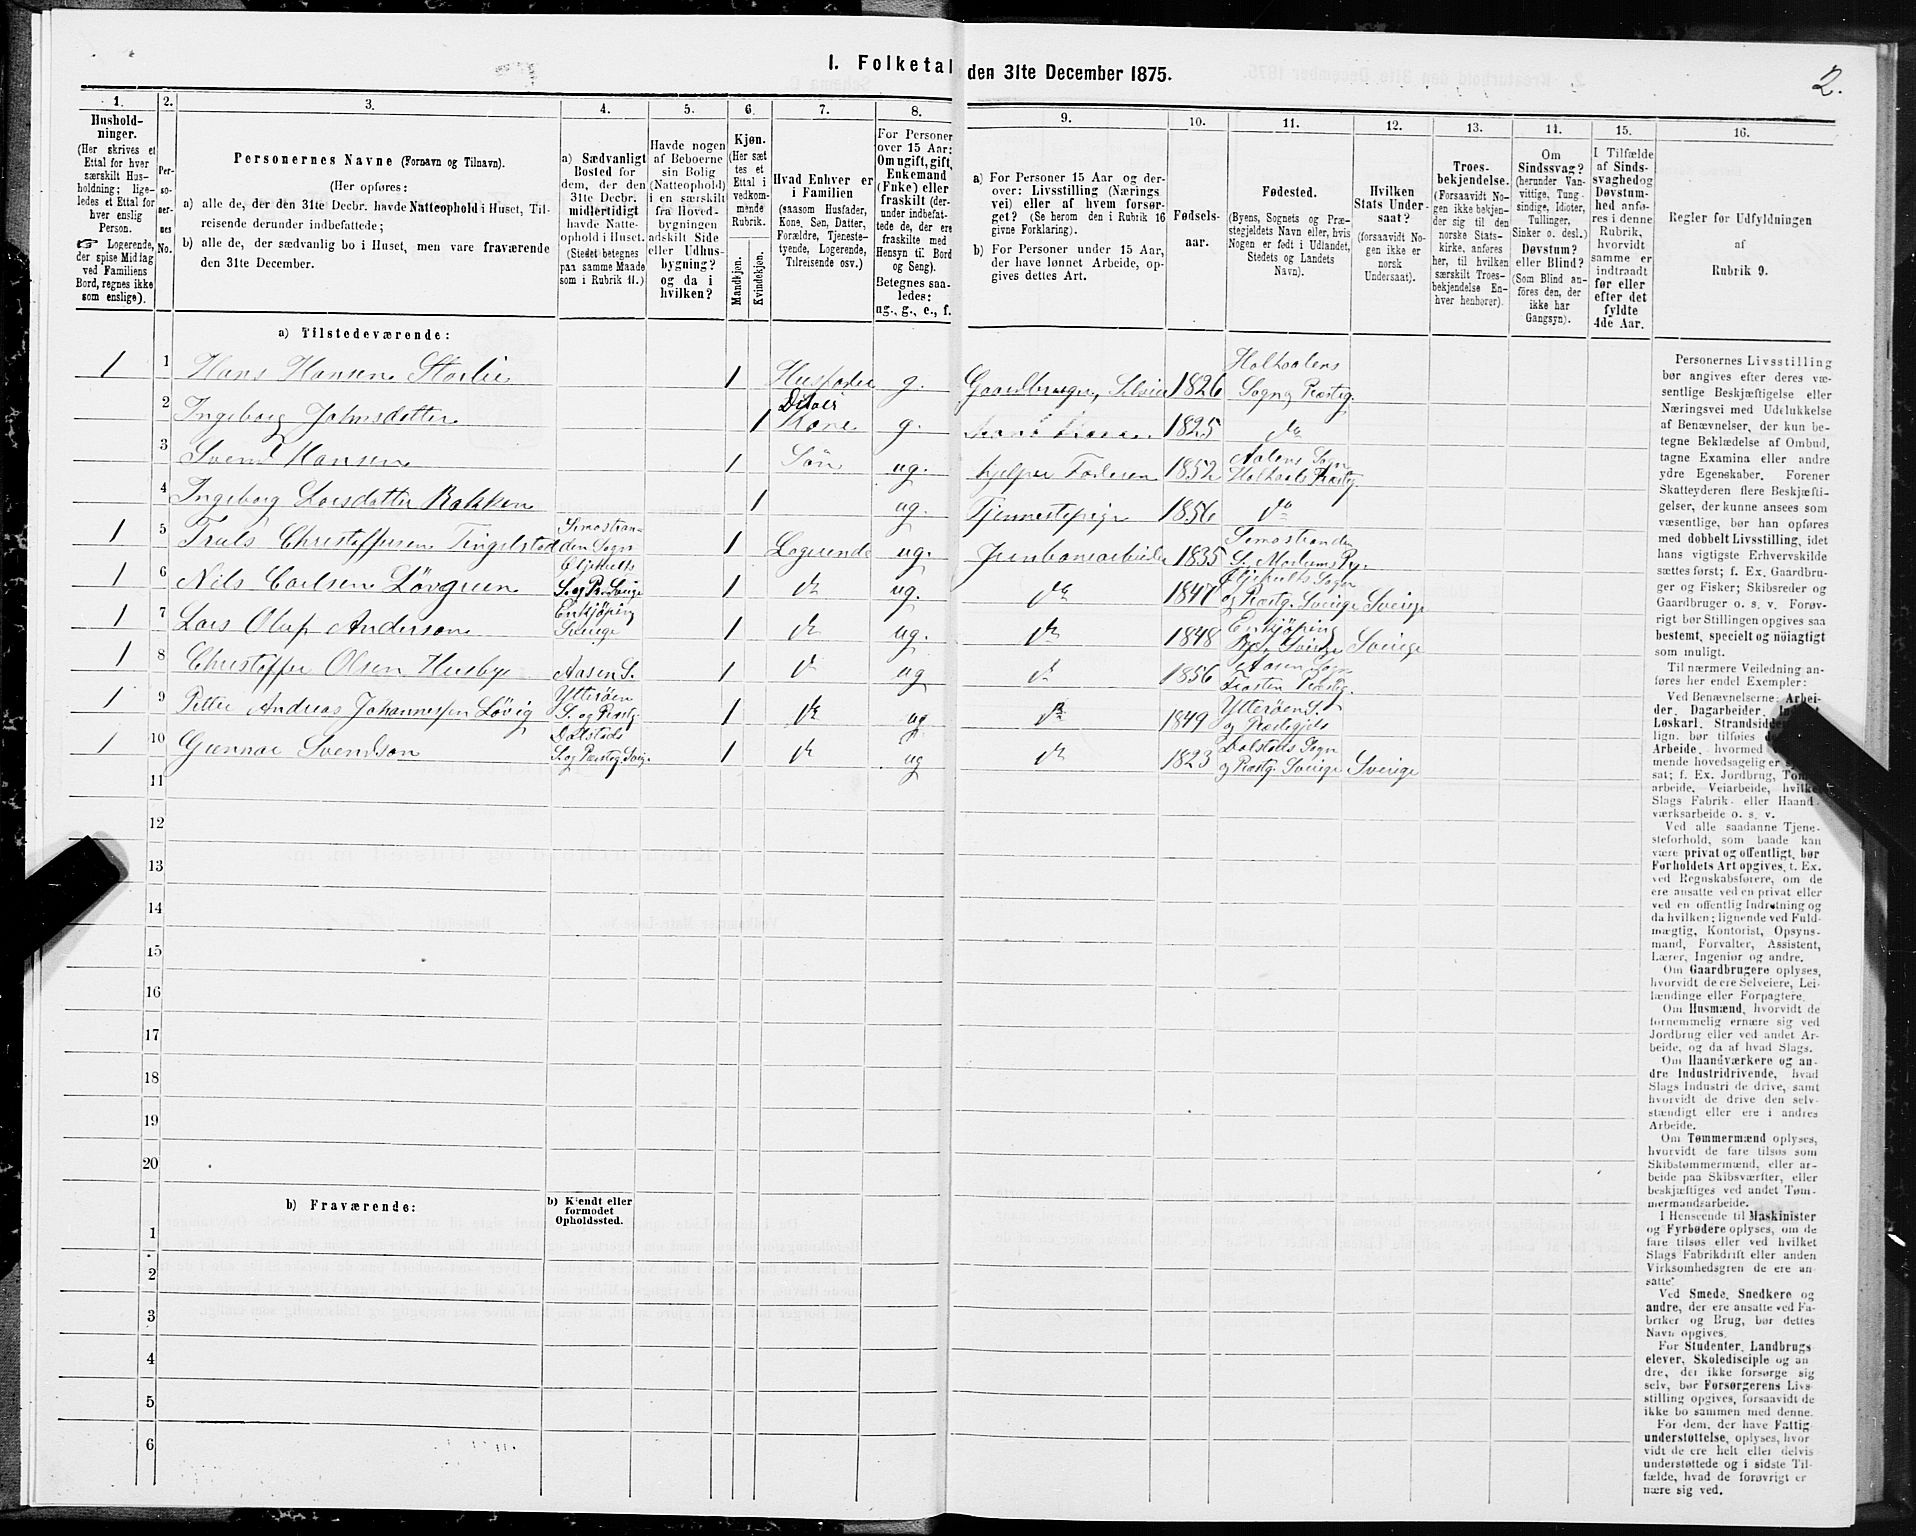 I. Folketal den 31te December 1875.
2.
1.
Hushold-
ninger.
(Her skrives et
Ettal for hver
særskilt Hus-
holdning; lige-
ledes et Ettal for
hver enslig
Person.
☞ Logerende,
der spise Middag
ved Familiens
Bord, regnes ikke
som enslige).
2.
Per-
so-
ner-
nes
No.
3.
Personernes Navne (Fornavn og Tilnavn).
(Her opføres:
a) alle de, der den 31te Decbr. havde Natteophold i Huset, Til-
reisende derunder indbefattede;
b) alle de, der sædvanlig bo i Huset, men vare fraværende
den 31te December.
4.
a) Sædvanligt
Bosted for
dem, der den
31te Decbr.
midlertidigt
havde Natte-
ophold i Huset.
(Stedet betegnes
paa samme Maade
som i Rubrik 11.)
5.
Havde nogen
af Beboerne
sin Bolig
(Natteophold)
i en særskilt
fra Hoved-
bygningen
adskilt Side
eller Udhus-
bygning?
og da i
hvilken?
6.
Kjøn.
(Her sæt-
tes et
Ettal i
vedkom-
mende
Rubrik.
Mandkjøn.
Kvindekjøn.
7.
Hvad Enhver er
i Familien
(saasom Husfader,
Kone, Søn, Datter,
Forældre, Tjeneste-
tyende, Logerende,
Tilreisende osv.)
8.
For Personer
over 15 Aar:
Om ugift, gift,
Enkemand
(Enke) eller
fraskilt (der-
under indbefat-
tede de, der ere
fraskilte med
Hensyn til Bord
og Seng).
Betegnes saa-
ledes:
ug., g., e., f.
9.
a) For Personer 15 Aar og der-
over: Livsstilling (Nærings
vei) eller af hvem forsør-
get? (Se herom den i Rubrik 16
givne Forklaring).
b) For Personer under 15 Aar,
der have lønnet Arbeide, op-
gives dettes Art.
10.
Fødsels-
aar.
11.
Fødested.
(Byens, Sognets og Præ-
stegjeldets Navn eller, hvis
Nogen er født i Udlandet,
Stedets og Landets
Navn).
12.
Hvilken
Stats Under-
saat?
(forsaavidt No-
gen ikke er
norsk
Undersaat).
13.
Troes-
bekjendelse.
(Forsaavidt No-
gen ikke bekjen-
der sig til den
norske Stats-
kirke, anføres
her, til hvilken
særskilt Troes-
bekjendelse En-
hver henhører).
14.
Om
Sindssvag?
(herunder Van-
vittige, Tung-
sindige, Idioter,
Tullinger,
Sinker o. desl.)
Døvstum?
eller Blind?
(Som Blind an-
føres den, der
ikke har
Gangsyn).
15.
I Tilfælde
af Sinds-
svaghed og
Døvstum-
hed anfø-
res i denne
Rubrik,
hvorvidt
samme er
indtraadt
før eller
efter det
fyldte
4de Aar.
16.
Regler for Udfyldningen
af
Rubrik 9.
a) Tilstedeværende:
1 1 Hans Hansen Storlie 1 Husfader g. Gaardbruger, Selvier 1826 Holtaalens Sogn og Præstg.
2 Ingeborg Johnsdatter 1 Ditoes Kone g. 1825 do
3 Svend Hansen 1 Søn ug. hjelper Faderen 1852 Aalens Sogn Holtaals Præstg
4 Ingeborg Larsdatter Bakken 1 ug. Tjennestepige 1856 do
1 5 Truls Christoffersen Tingelstad Simostranden Sogn 1 Logerende ug. Jernbanearbeider 1835 Simostranden S. Modums Pg.
1 6 Nils Carlsen Løvgren S. og P. Sverige 1 do ug. do 1847 Sogn og Præstg. Sverige Sverige
1 7 Lars Oluf Anderson Enkjöping Sverige 1 do ug. do 1848 Enkjöping Sverige Sverige
1 8 Christoffer Olsen Husby Aasen S. 1 do ug do 1856 Aasen Sogn Frosten Præstg.
1 9 Petter Andreas Johannessen Løvig Ytterøen S. og Præstg. 1 do ug do 1849 Ytterøen S. og Præstegjeld
1 10 Gunnar Svendson Dalstads S. og Præstg. Sverige 1 do ug do 1823 Dalstads Sogn og Præstg. Sverige Sverige
11
12
13
14
15
16
17
18
19
20
b) Fraværende:
b) Kjendt eller
formodet
Opholdssted.
1
2
3
4
5
6
Personernes Livsstilling
bør angives efter deres væ-
sentlige Beskjæftigelse eller
Næringsvei med Udelukkelse
af Benævnelser, der kun be-
tegne Beklædelse af Ombud,
tagne Examina eller andre
ydre Egenskaber. Forener
Skatteyderen flere Beskjæfti-
gelser, der kunne ansees som
væsentlige, bør han opføres
med dobbelt Livsstilling, idet
hans vigtigste Erhvervskilde
sættes først; f. Ex. Gaardbru-
ger og Fisker; Skibsreder og
Gaardbruger o. s. v. Forøv-
rigt bør Stillingen opgives saa
bestemt, specielt og nöiagtigt
som muligt.
Til nærmere Veiledning an-
føres her endel Exempler:
Ved Benævnelserne: Arbei-
der, Dagarbeider,
Løskarl, Strandsidder
lign. bør tilføies
Arbeide, hvormed
mende hovedsagelig er
sat; f. Ex. Jordbrug, Tom-
arbeide, Veiarbeide, hvilket
Slags Fabrik- eller Haand-
værksarbeide o. s. v.
Ved alle saadanne Tjene-
steforhold, som baade kan
være privat og offentligt, bør
Forholdets Art opgives, t. Ex.
ved Regnskabsførere, om de
ere ansatte ved en privat eller
ved en offentlig Indretning og
da hvilken; lignende ved Fuld-
mægtig, Kontorist, Opsyns-
mand, Forvalter, Assistent,
Lærer, Ingeniør og andre.
Om Gaardbrugere oplyses,
hvorvidt de ere Selveiere, Lei-
lændinge eller Forpagtere.
Om Husmænd, hvorvidt de
fornemmelig ernære sig ved
Jordbrug eller ved andet Ar-
beide, og da af hvad Slags.
Om Haandværkere og an-
dre Industridrivende, hvad
Slags Industri de drive, samt
hvorvidt de drive den selv-
stændigt eller ere i andres
Arbeide.
Om Tømmermænd oplyses,
hvorvidt de fare tilsøs som
Skibstømmermænd, eller ar-
beide paa Skibsværfter, eller
beskjæftiges ved andet Tøm-
mermandsarbeide.
I Henseende til Maskinister
og Fyrbødere oplyses, om de
fare tilsøs eller ved hvilket
Slags Fabrikdrift eller anden
Virksomhedsgren de ere an-
satte.
Ved Smede, Snedkere og
andre, der ere ansatte ved Fa-
briker og Brug, bør dettes
Navn opgives.
For Studenter, Landbrugs
elever, Skoledisciple og an
dre, der ikke forsørge sig
selv, bør Forsørgerens Livs-
stilling opgives, forsaavidt de
ikke bo sammen med denne.
For dem, der have Fattig
understøttelse, oplyses, hvor
vidt de ere helt eller delvis
understøttede og i sidste Til-
fælde, hvad de forøvrigt er
nære sig ved.